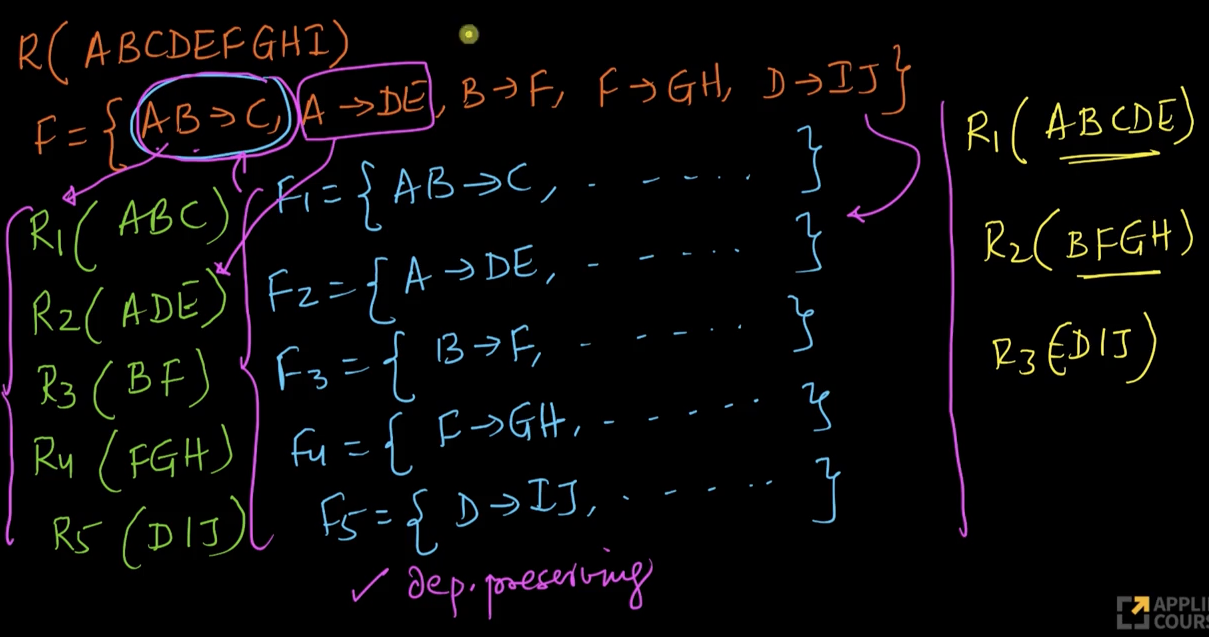 R(ABCDEFGHI)
F={AB→C, A→DE, B→F, F→GH, D→IJ}
R1(ABC)
R2(ADE)
R3(BF)
R4(FGH)
R5(DIJ)
F1={AB→C, - - - - . . }
F2={A→DE, - - - . . . }
F3={B→F, - - - . . . }
F4={F→GH, - - - . . . . }
F5={D→IJ, . - - - . . }
✓ dep. preserving
R1(ABCDE)
R2(BFGH)
R3(DIJ)
APPLI
COURS